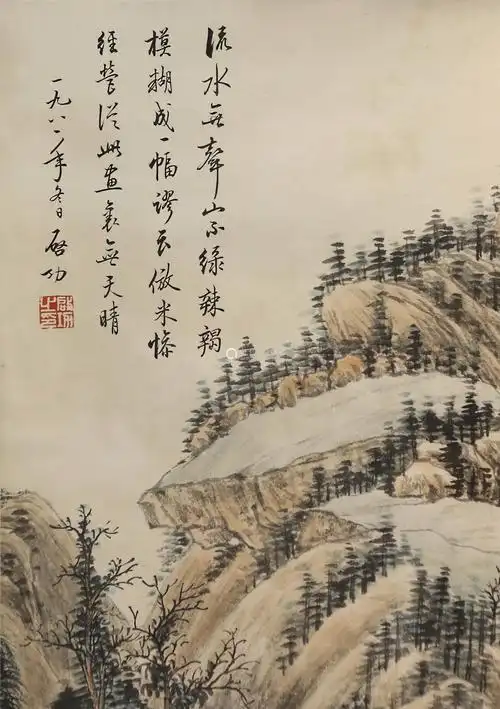 流水無聲山不綠辣
模糊成一幅謬云倣米慘
經營從此畫裏無天晴
一九八一年冬日 啓功
啓功之印